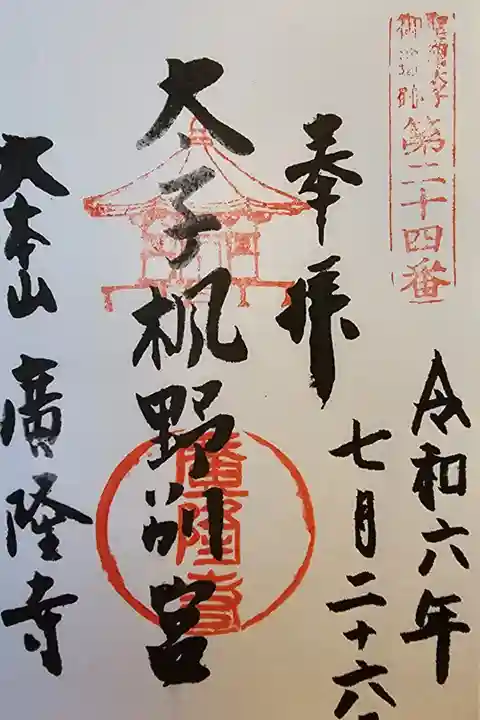 聖徳太子
御遺跡
第二十四番
令和六年
七月二十六
奉拝
太子楓野別宮
廣隆寺
大本山 廣隆寺